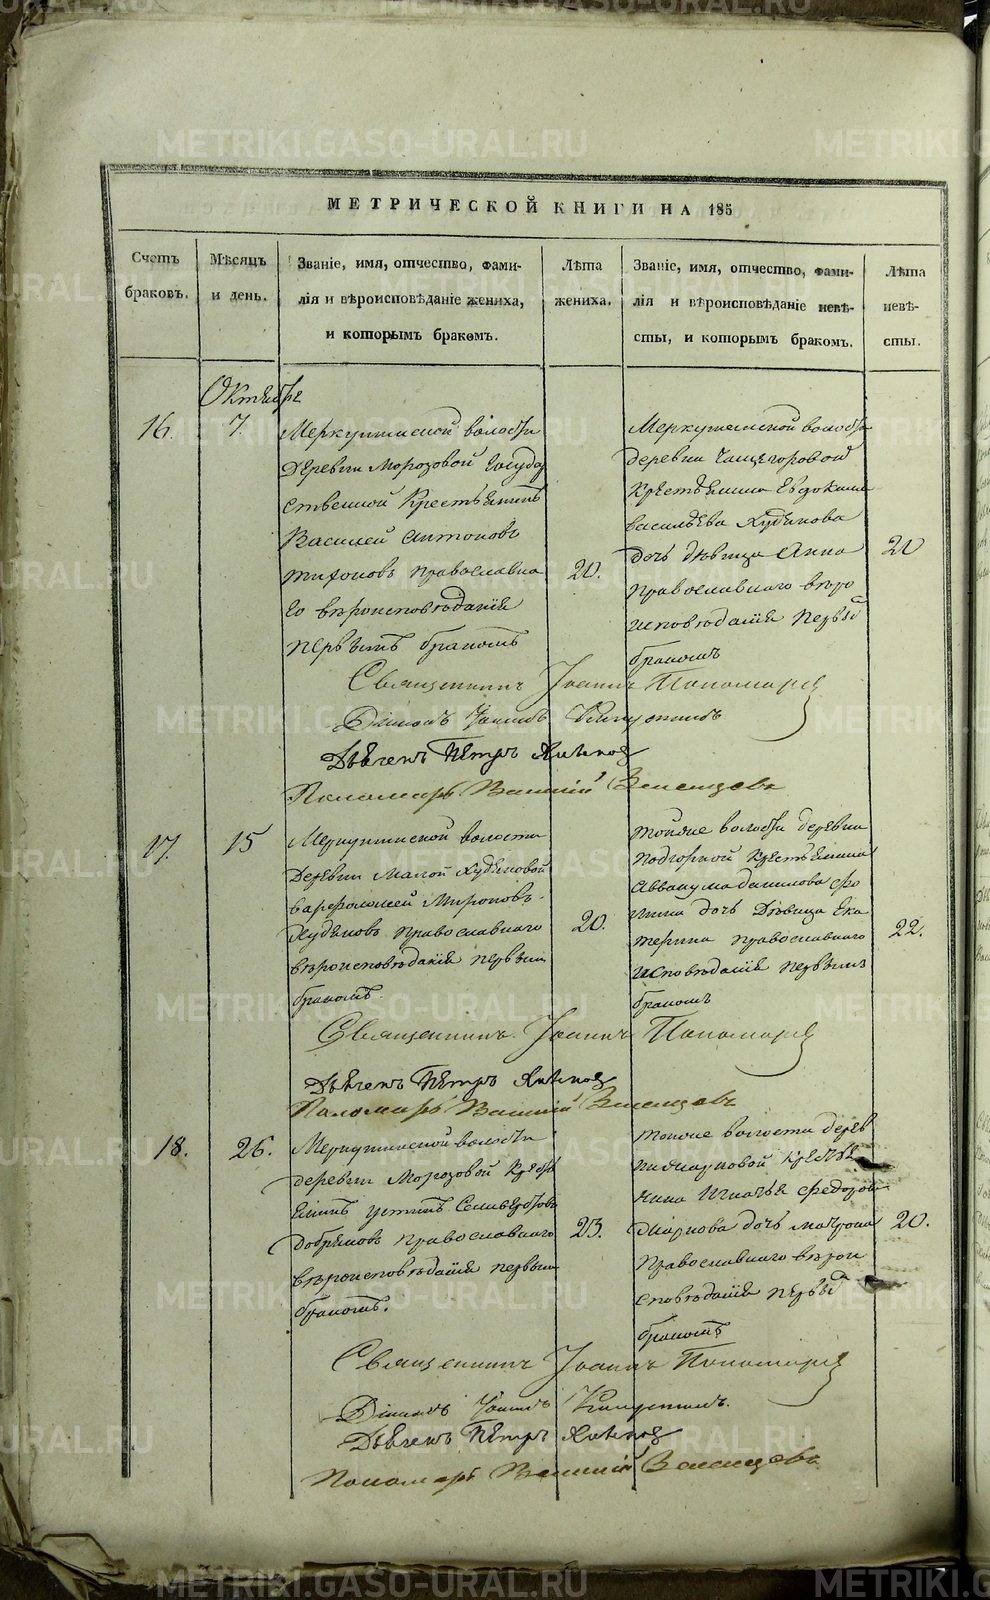 МЕТРИЧЕСКОЙ КНИГИ НА 185
Счетъ браковъ.
Мѣсяцъ и день.
Званіе, имя, отчество, фами-
лія и вѣроисповѣданіе жениха,
и которымъ бракомъ.
Лѣта жениха.
Званіе, имя, отчество, фами-
лія и вѣроисповѣданіе невѣ-
сты, и которымъ бракомъ.
Лѣта невѣ-
сты.
Октября
16.
7.
Меркушинской волости
деревни Морозовой Государ
ственной Крестьянинъ
Василей Антоновъ
Тифоновъ православна
го вѣроисповѣданія
первымъ бракомъ
20.
Меркушинской волости
деревни
Крестьянина Евдокима
Васильева Худякова
дочь дѣвица Анна
православнаго вѣро
исповѣданія первы
бракомъ
20
Священникъ Іоаннъ Пономаре
Діаконъ Іоаннъ
Дьячекъ Петръ
Пономарь Василій
17.
15
Меркушинской волости
деревни Малой Худяковой
Варфоломей Мироновъ
Худяковъ православнаго
вѣроисповѣданія первымъ
бракомъ.
20.
тойже волости деревни
Подгорной Крестьянина
Аввакума Данилова Фо
мина дочь Дѣвица Ека
терина православнаго
исповѣданія первымъ
бракомъ
22.
Священникъ Іоаннъ Пономаре
Дьячекъ Петръ
Пономарь Василій
18.
26.
Меркушинской волости
деревни Морозовой Крестья
янинъ Устинъ Селиверстовъ
Добрыновъ православнаго
вѣроисповѣданія первымъ
бракомъ.
23.
тойже волости дерев
ни Макаровой Крестья
нина Игнатья Федорова
Маркова дочь Матрона
православнаго вѣрои
сповѣданія первы
бракомъ
20.
Священникъ Іоаннъ Пономаре
Діаконъ Іоаннъ
Дьячекъ Петръ
Пономарь Василій
METRIKI.GASO-URAL.RU